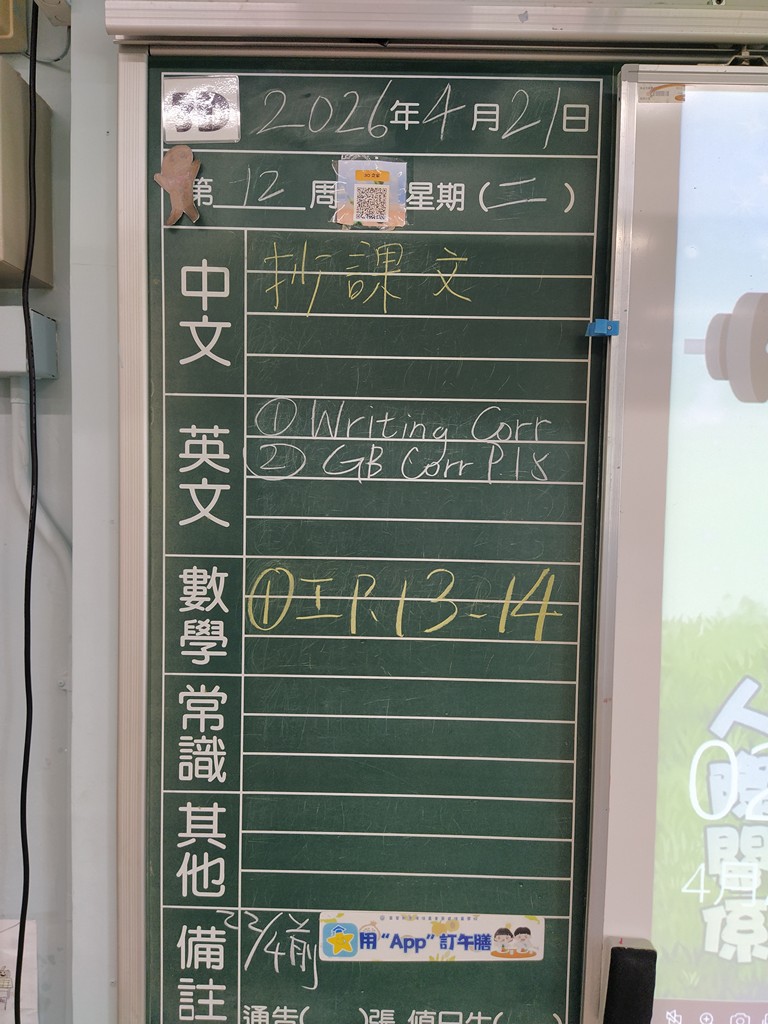 2026年4月21日
第 12 周 星期(二)
中文
抄課文
英文
① Writing Corr
② GB Corr P.18
數學
① 工 P.13-14
常識
其他
備註
22/4前
用“App”訂午膳
通告( )張 值日生( )
人際關係
02
4月